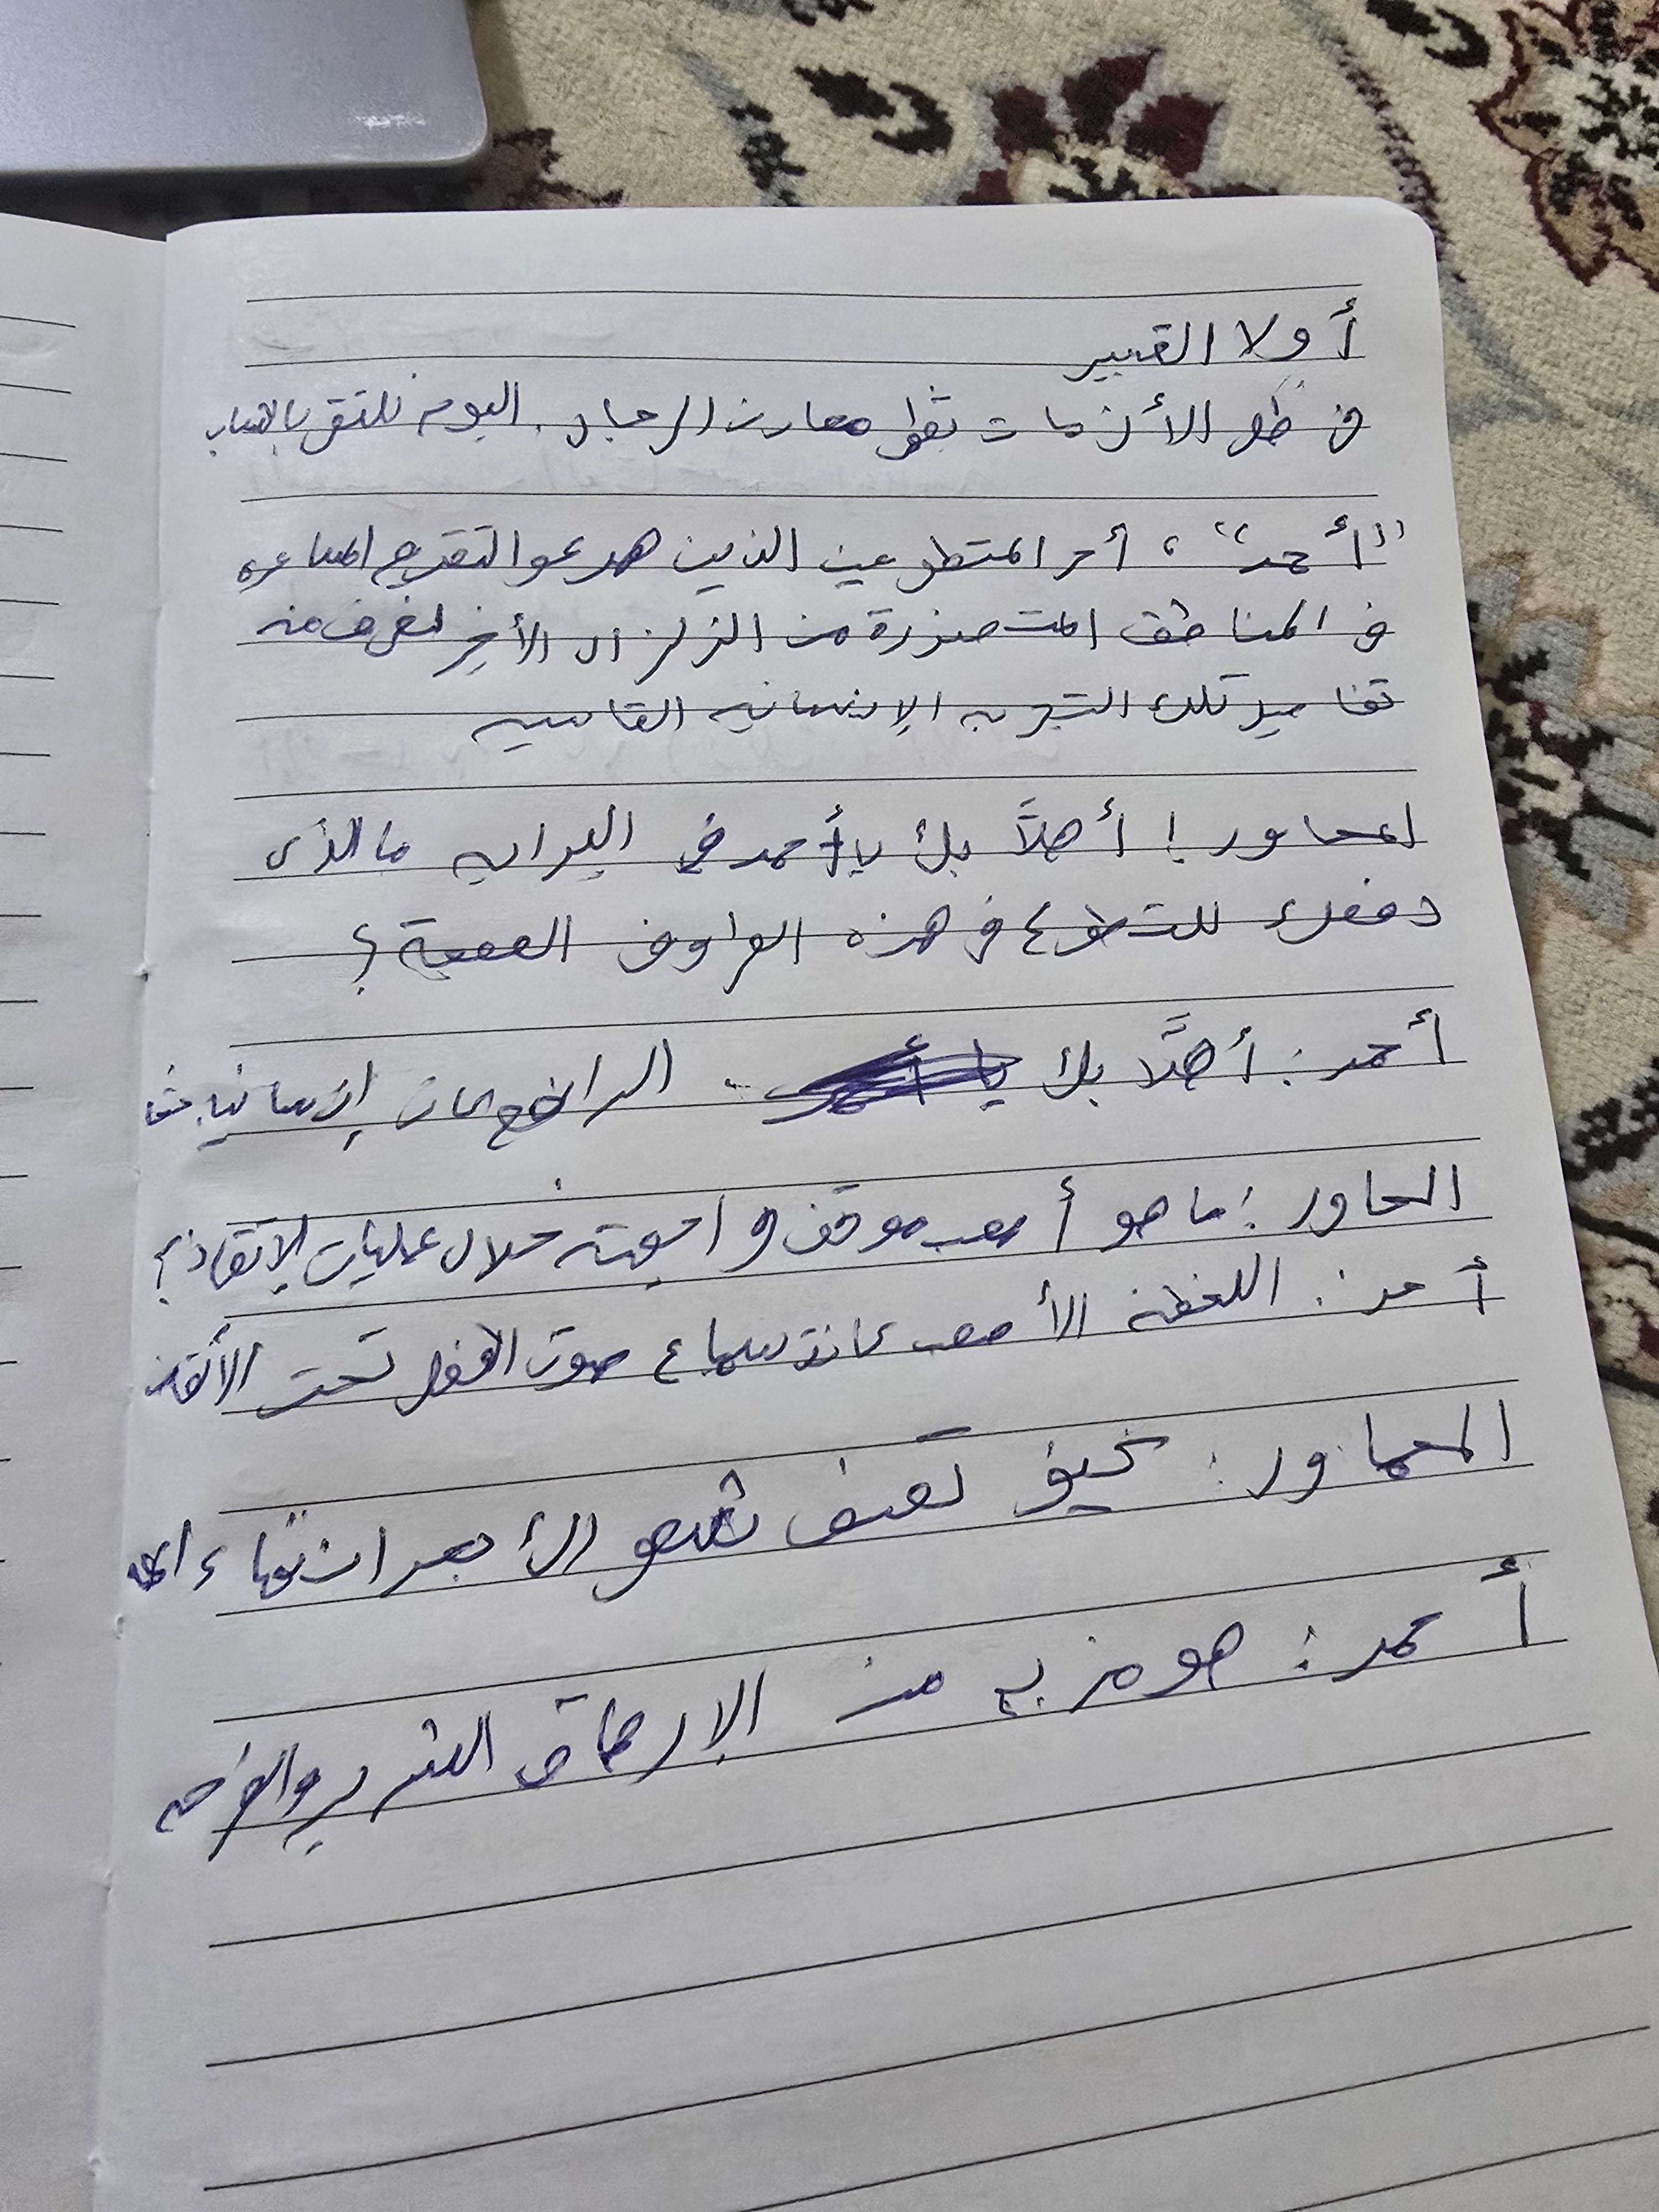 أولا التعبير
في ظل الأزمات تظهر معادن الرجال. اليوم نلتقي بالشاب
"أحمد"، أحد المتطوعين الذين هرعوا لتقديم المساعده
في المناطق المتضررة من الزلزال الأخير لنعرف منه
تفاصيل تلك التجربه الإنسانيه القاسيه
المحاور: أهلاً بك يا أحمد في البدايه ما الذى
دفعك للتطوع في هذه الظروف الصعبة؟
أحمد: أهلًا بك . الدافع كان إنسانيا
المحاور: ما هو أصعب موقف واجهته خلال عمليات الإنقاذ؟
أحمد: اللحظه الأصعب كانت سماع صوت طفل تحت الأنقاض
المحاور: كيف تصف شعورك بعد انتهاء
أحمد: هو مزيج من الإرهاق الشديد والراحه